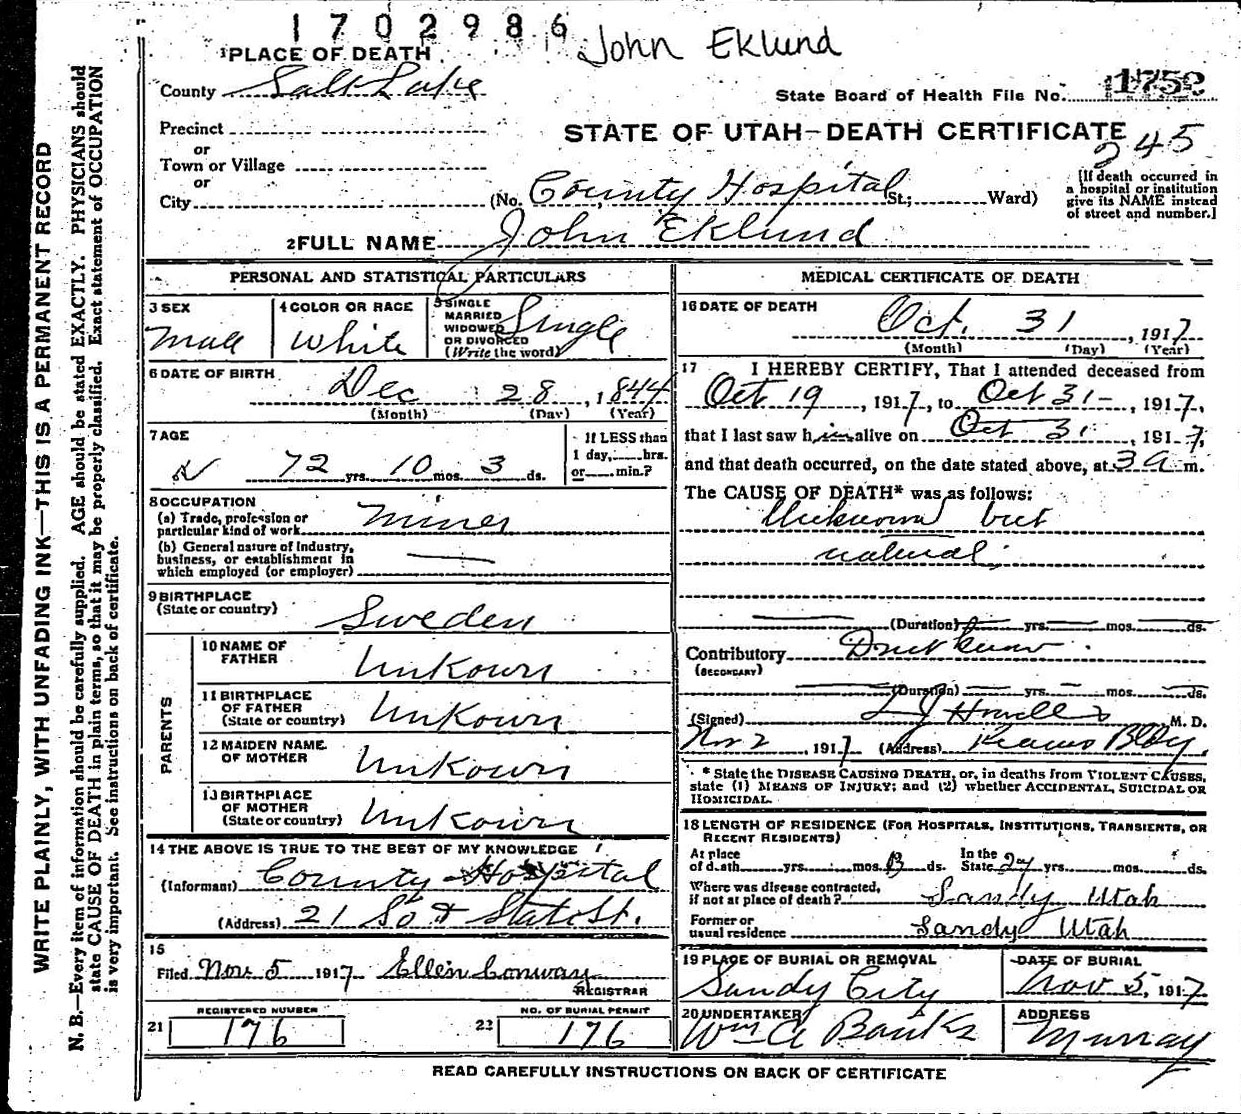 1702986
John Eklund
1 PLACE OF DEATH
County Salt Lake
State Board of Health File No. 1752
Precinct
or
STATE OF UTAH-DEATH CERTIFICATE
245
Town or Village
or
City (No. County Hospital St.; Ward)
[If death occurred in
a hospital or institution
give its NAME instead
of street and number.]
2 FULL NAME John Eklund
PERSONAL AND STATISTICAL PARTICULARS
3 SEX
Male
4 COLOR OR RACE
White
5 SINGLE
MARRIED
WIDOWED
OR DIVORCED
(Write the word)
Single
6 DATE OF BIRTH
Dec 28, 1844
(Month) (Day) (Year)
7 AGE
72 yrs. 10 mos. 3 ds.
If LESS than
1 day, hrs.
or min.?
8 OCCUPATION
(a) Trade, profession or
particular kind of work Miner
(b) General nature of Industry,
business, or establishment in
which employed (or employer)
9 BIRTHPLACE
(State or country) Sweden
PARENTS
10 NAME OF
FATHER Unkown
11 BIRTHPLACE
OF FATHER
(State or country) Unkown
12 MAIDEN NAME
OF MOTHER Unkown
13 BIRTHPLACE
OF MOTHER
(State or country) Unkown
14 THE ABOVE IS TRUE TO THE BEST OF MY KNOWLEDGE
(Informant) County Hospital
(Address) 21 So & State St.
15
Filed Nov 5 1917 Ellen Conway
REGISTRAR
REGISTERED NUMBER
21 176
NO. OF BURIAL PERMIT
22 176
MEDICAL CERTIFICATE OF DEATH
16 DATE OF DEATH
Oct. 31, 1917
(Month) (Day) (Year)
17 I HEREBY CERTIFY, That I attended deceased from
Oct 19, 1917, to Oct 31, 1917,
that I last saw him alive on Oct 31, 1917,
and that death occurred, on the date stated above, at 3 a m.
The CAUSE OF DEATH* was as follows:
Unknown but
natural
(Duration) yrs. mos. ds.
Contributory Dont know
(SECONDARY)
(Duration) yrs. mos. ds.
(Signed) Howells, M. D.
Nov 2, 1917 (Address) Kearns Bldg.
* State the DISEASE CAUSING DEATH, or, in deaths from VIOLENT CAUSES,
state (1) MEANS OF INJURY; and (2) whether ACCIDENTAL, SUICIDAL OR
HOMICIDAL.
18 LENGTH OF RESIDENCE (FOR HOSPITALS, INSTITUTIONS, TRANSIENTS, OR
RECENT RESIDENTS)
At place
of death yrs. mos. 13 ds.
In the
State 27 yrs. mos. ds.
Where was disease contracted,
if not at place of death? Sandy Utah
Former or
usual residence Sandy Utah
19 PLACE OF BURIAL OR REMOVAL
Sandy City
DATE OF BURIAL
Nov 5, 1917
20 UNDERTAKER
Wm A Banks
ADDRESS
Murray
READ CAREFULLY INSTRUCTIONS ON BACK OF CERTIFICATE
WRITE PLAINLY, WITH UNFADING INK—THIS IS A PERMANENT RECORD
N. B.—Every item of information should be carefully supplied. AGE should be stated EXACTLY. PHYSICIANS should
state CAUSE OF DEATH in plain terms, so that it may be properly classified. Exact statement of OCCUPATION
is very important. See instructions on back of certificate.